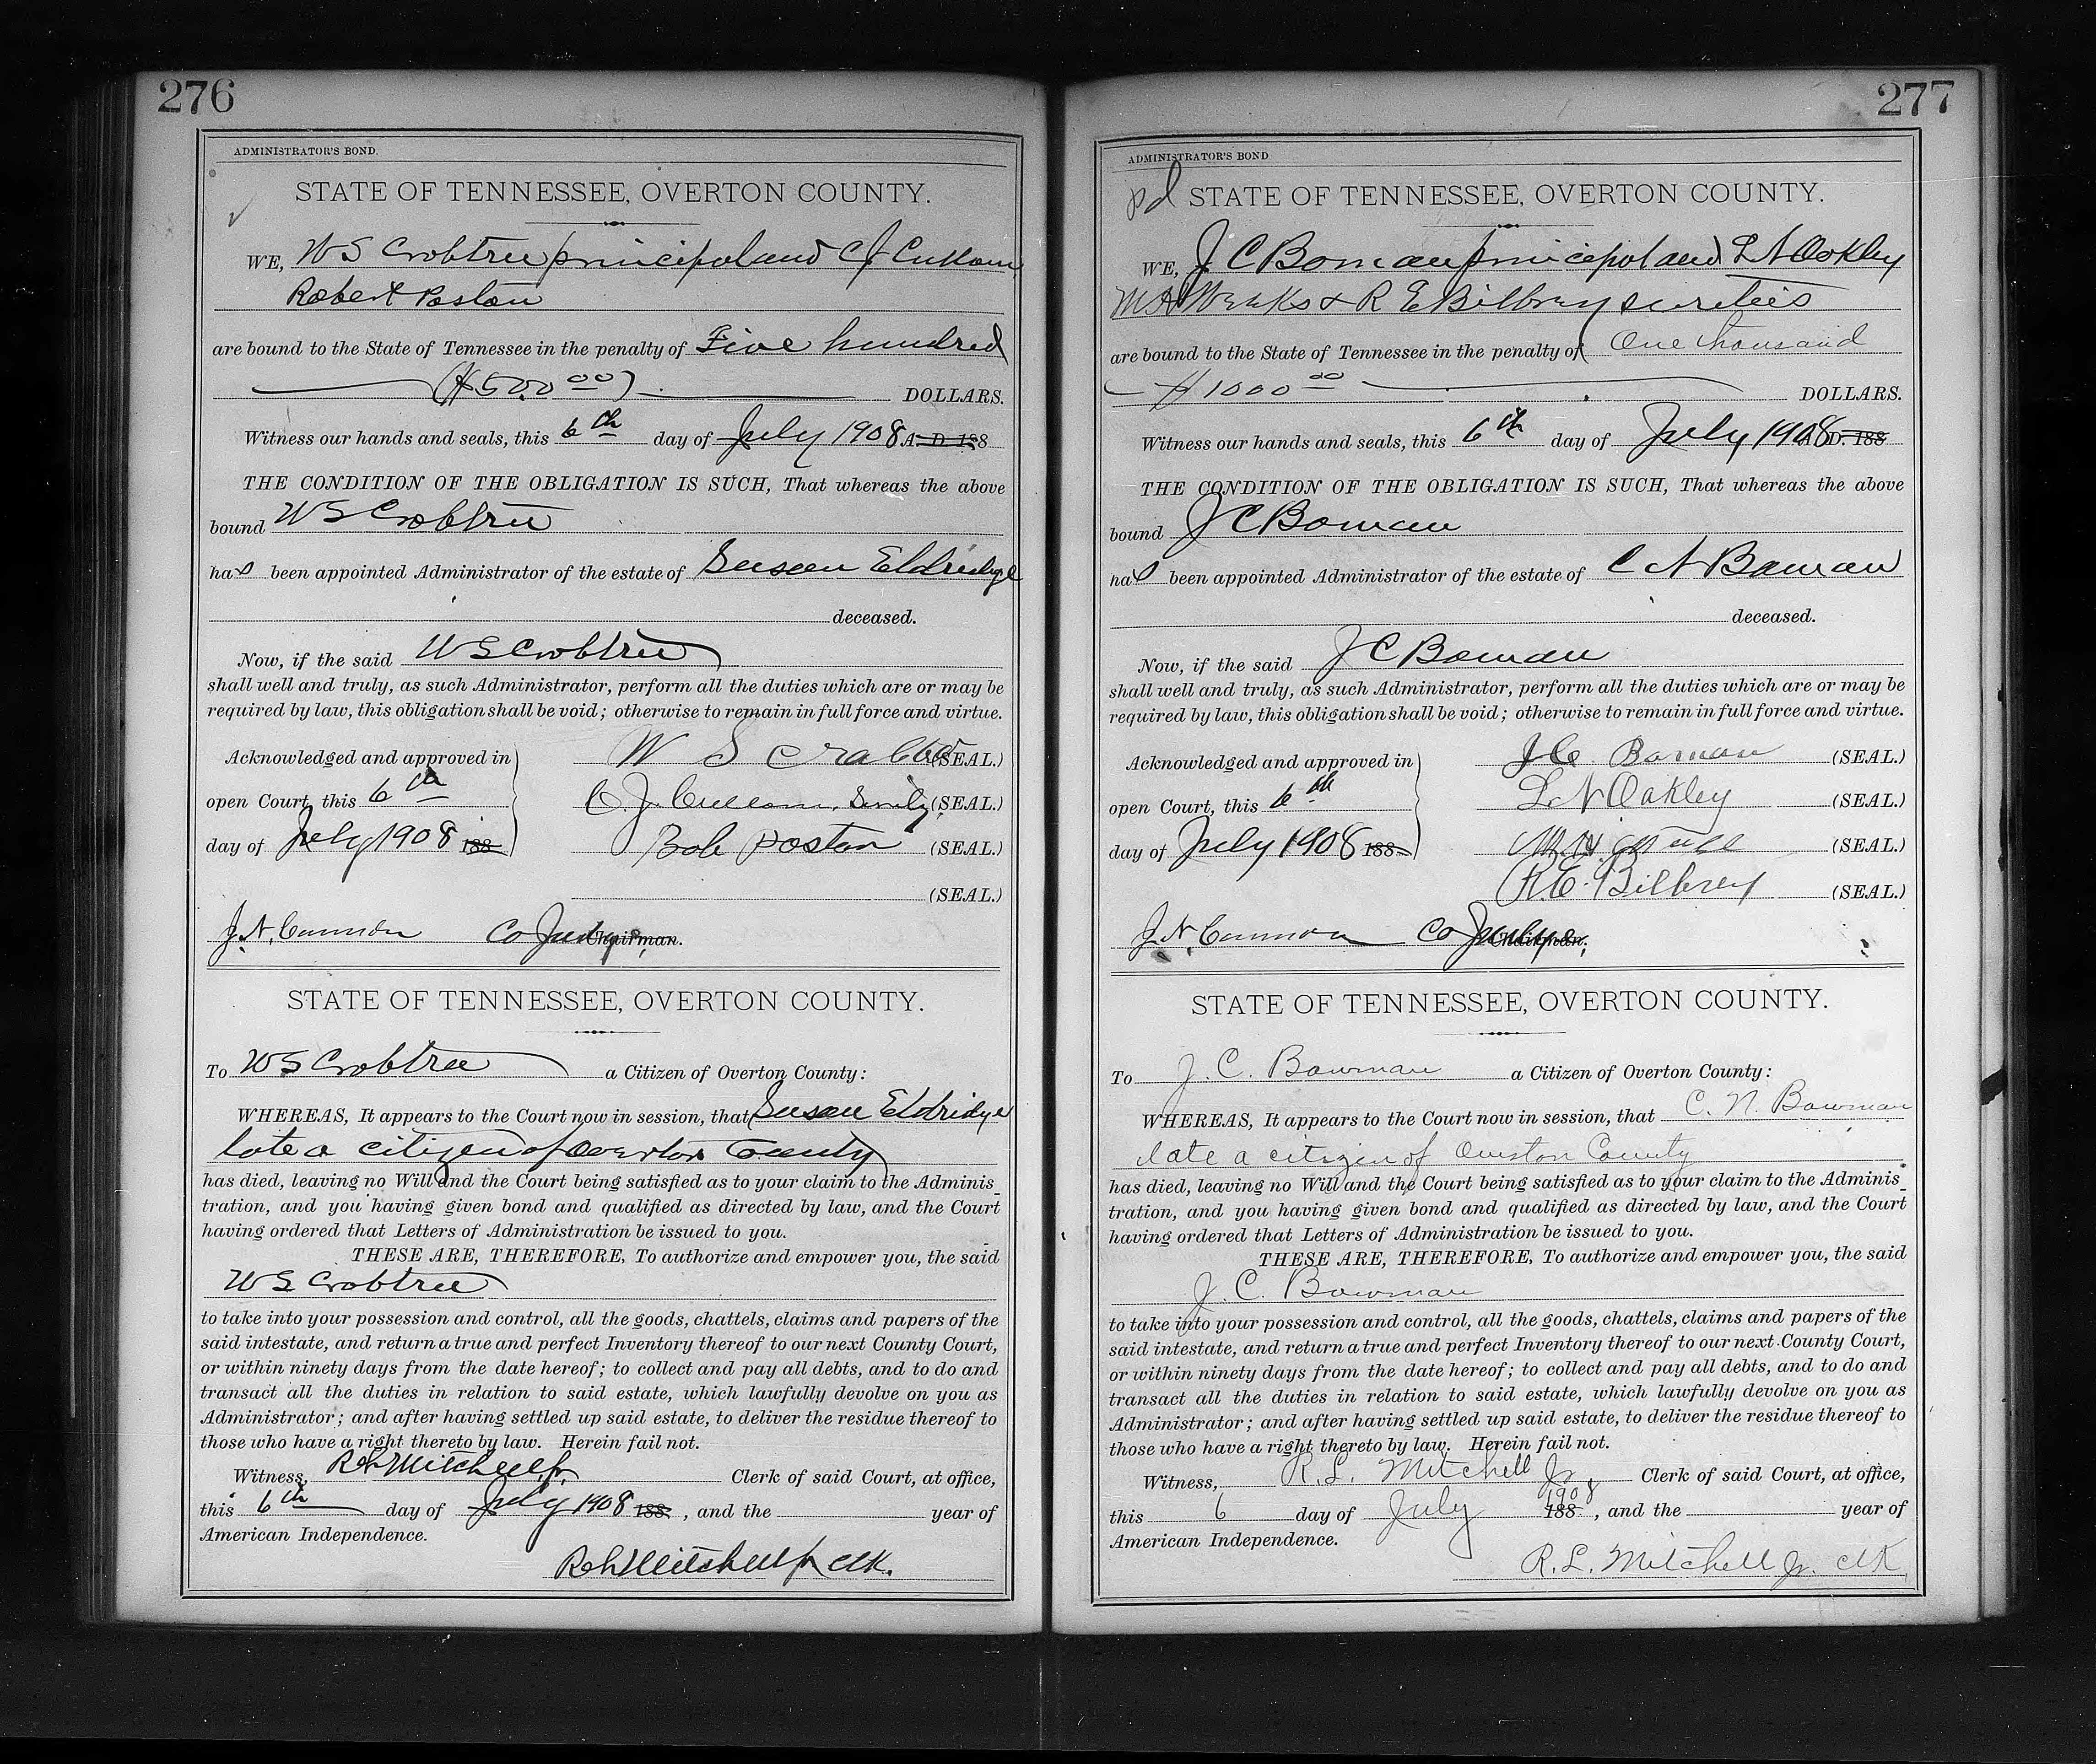 276
ADMINISTRATOR'S BOND.
STATE OF TENNESSEE, OVERTON COUNTY.
WE, W S Crobtree principal and C J Cullom
Robert Poston
are bound to the State of Tennessee in the penalty of Five hundred
($500.00) DOLLARS.
Witness our hands and seals, this 6th day of July 1908 A. D. 188
THE CONDITION OF THE OBLIGATION IS SUCH, That whereas the above
bound W S Crobtree
has been appointed Administrator of the estate of Susan Eldridge
deceased.
Now, if the said W S Crobtree
shall well and truly, as such Administrator, perform all the duties which are or may be
required by law, this obligation shall be void; otherwise to remain in full force and virtue.
Acknowledged and approved in W S (SEAL.)
open Court, this 6th C. J. Cullom, (SEAL.)
day of July 1908 188 Bob Poston (SEAL.)
(SEAL.)
J. N. Co Judge, Chairman.
STATE OF TENNESSEE, OVERTON COUNTY.
To W S Crobtree a Citizen of Overton County:
WHEREAS, It appears to the Court now in session, that Susan Eldridge
late a citizen of Overton County
has died, leaving no Will and the Court being satisfied as to your claim to the Adminis-
tration, and you having given bond and qualified as directed by law, and the Court
having ordered that Letters of Administration be issued to you.
THESE ARE, THEREFORE, To authorize and empower you, the said
W S Crobtree
to take into your possession and control, all the goods, chattels, claims and papers of the
said intestate, and return a true and perfect Inventory thereof to our next County Court,
or within ninety days from the date hereof; to collect and pay all debts, and to do and
transact all the duties in relation to said estate, which lawfully devolve on you as
Administrator; and after having settled up said estate, to deliver the residue thereof to
those who have a right thereto by law. Herein fail not.
Witness, R L Mitchell Jr. Clerk of said Court, at office,
this 6th day of July 1908 188 , and the year of
American Independence.
R L Mitchell Jr Clk.
277
ADMINISTRATOR'S BOND
pd STATE OF TENNESSEE, OVERTON COUNTY.
WE, J C Boman principal and L N Oakley
M H & R E Bilbrey sureties
are bound to the State of Tennessee in the penalty of One thousand
$1000.00 DOLLARS.
Witness our hands and seals, this 6th day of July 1908 A. D. 188
THE CONDITION OF THE OBLIGATION IS SUCH, That whereas the above
bound J C Boman
has been appointed Administrator of the estate of C N Boman
deceased.
Now, if the said J C Boman
shall well and truly, as such Administrator, perform all the duties which are or may be
required by law, this obligation shall be void; otherwise to remain in full force and virtue.
Acknowledged and approved in J. C. Boman (SEAL.)
open Court, this 6th L. N Oakley (SEAL.)
day of July 1908 188 M. H. (SEAL.)
R. E. Bilbrey (SEAL.)
J. N. Co Judge, Chairman.
STATE OF TENNESSEE, OVERTON COUNTY.
To J. C. Bowman a Citizen of Overton County:
WHEREAS, It appears to the Court now in session, that C. N. Bowman
late a citizen of Overton County
has died, leaving no Will and the Court being satisfied as to your claim to the Adminis-
tration, and you having given bond and qualified as directed by law, and the Court
having ordered that Letters of Administration be issued to you.
THESE ARE, THEREFORE, To authorize and empower you, the said
J. C. Bowman
to take into your possession and control, all the goods, chattels, claims and papers of the
said intestate, and return a true and perfect Inventory thereof to our next County Court,
or within ninety days from the date hereof; to collect and pay all debts, and to do and
transact all the duties in relation to said estate, which lawfully devolve on you as
Administrator; and after having settled up said estate, to deliver the residue thereof to
those who have a right thereto by law. Herein fail not.
Witness, R. L. Mitchell Jr. Clerk of said Court, at office,
this 6 day of July 1908 188 , and the year of
American Independence.
R. L. Mitchell Jr. Clk